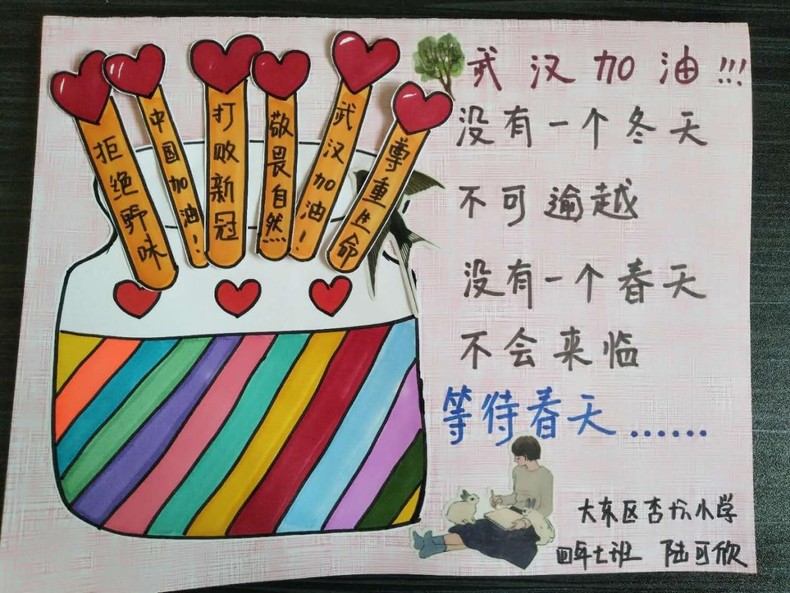 拒绝野味
中国加油!
打败新冠
敬畏自然
武汉加油!
尊重生命
武汉加油!!!
没有一个冬天
不可逾越
没有一个春天
不会来临
等待春天......
大东区杏坛小学
四年七班 陆可欣